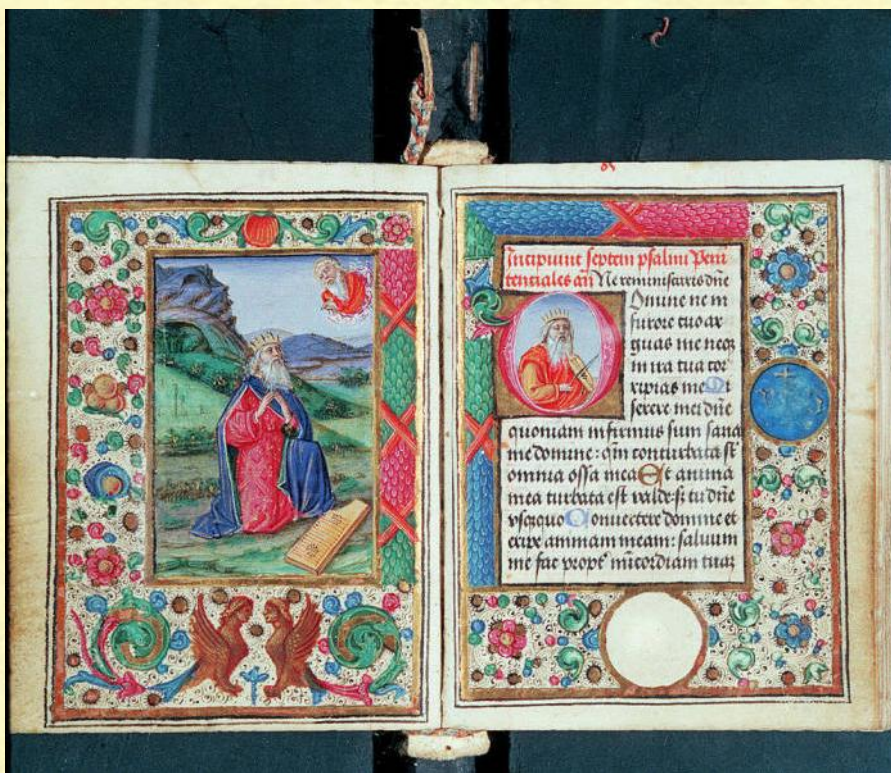 85
Incipiunt septem psalmi Peni
tentiales añ Ne reminiscaris dñe
Omine ne in
furore tuo ar
guas me neq
in ira tua cor
ripias me Mi
serere mei dñe
quoniam infirmus sum sana
me domine: qm conturbata st
omnia ossa mea Et anima
mea turbata est valde: s; tu dñe
vsqquo Conuertere domine et
eripe animam meam: saluum
me fac propt mĩcordiam tuaz